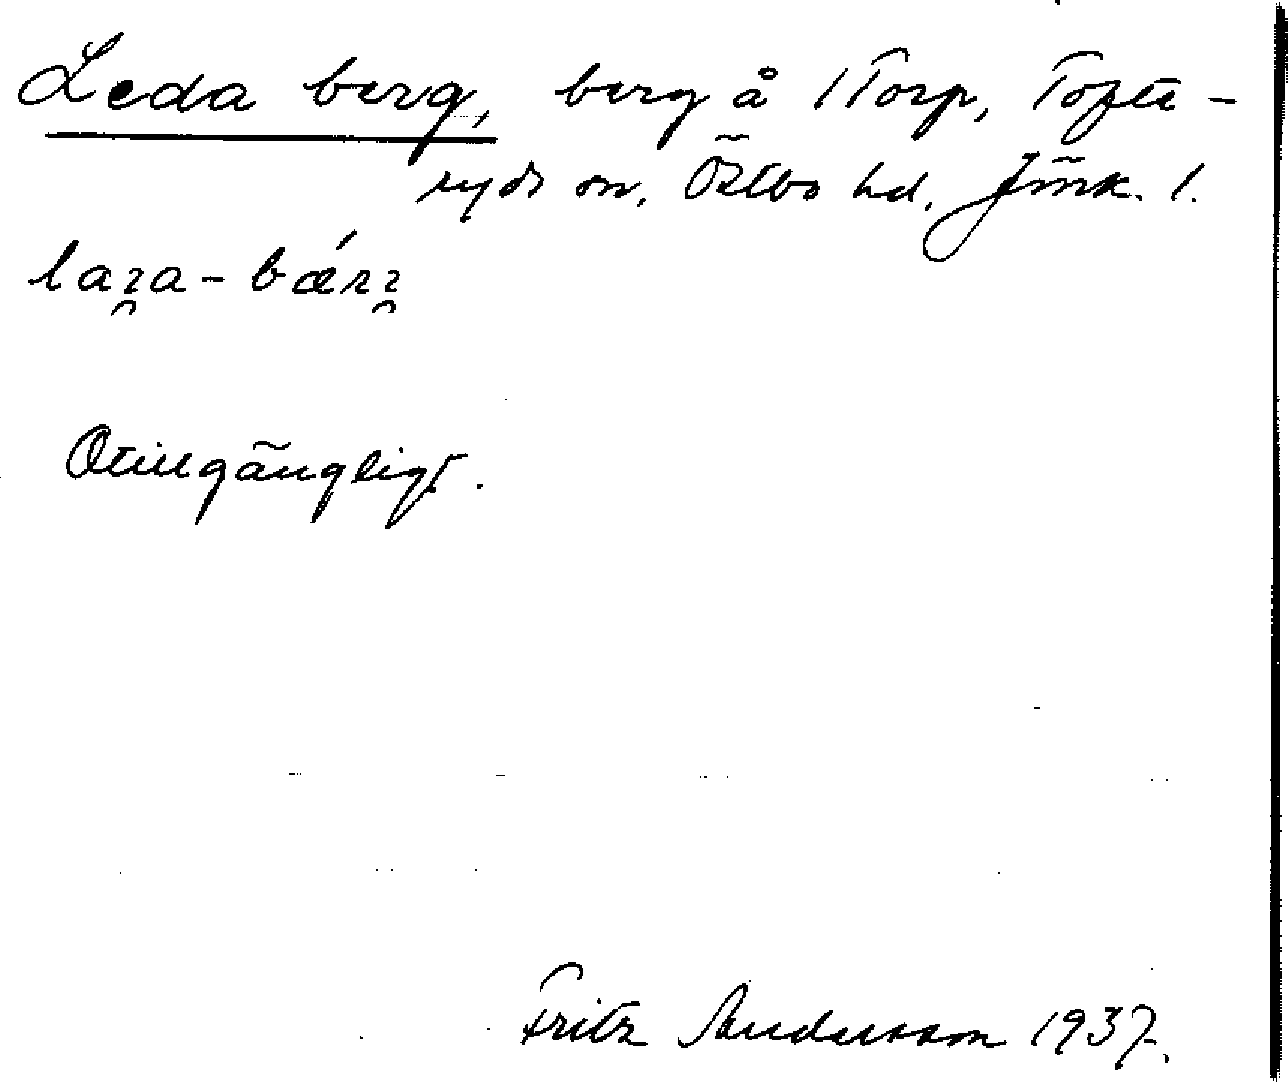 Leda berg, berg å 1 Torp, Tofta-
ryds sn, Östbo hd. Jmk. l.
laꝛ̯a-bǽrꝛ̯
Otillgängligt.
Fritz Andersson 1937.